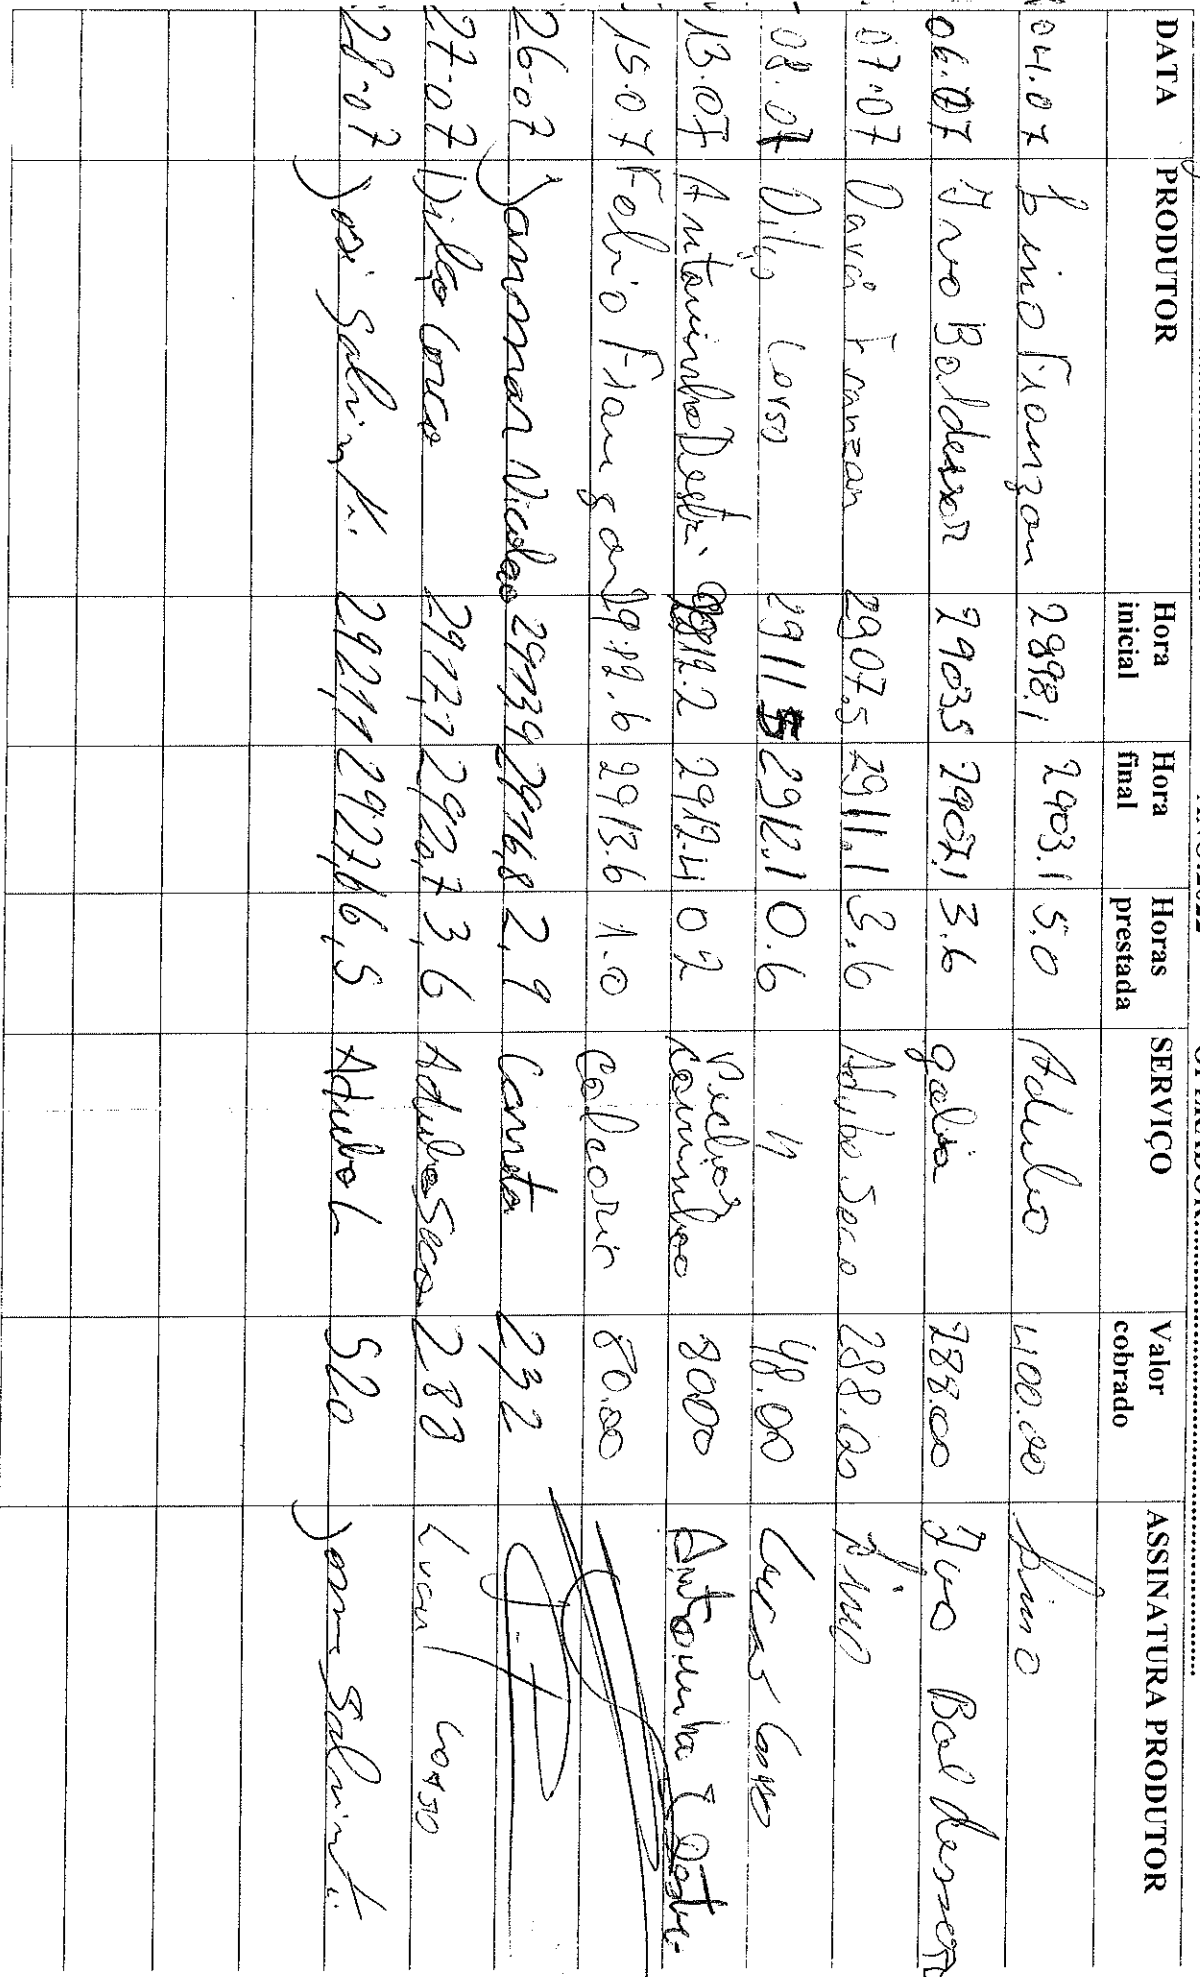 DATA PRODUTOR Hora inicial Hora final Horas prestada SERVIÇO Valor cobrado ASSINATURA PRODUTOR
04.07 Lino Franzon 2898,1 2903.1 5.0 Adubo 400.00 Lino
06.07 Ivo Baldessar 2903.5 2907,1 3.6 288.00 Ivo Baldessar
07.07 Davi Franzan 2907,5 2911,1 3,6 Adubo Seco 288.00
08.07 Dilço Corso 2911,5 2912,1 0.6 48.00 Lucas Corso
13.07 Antoninho Destri 2912.2 2912.4 02 8000 Antoninho
15.07 Fabio Franzon 2912.6 2913.6 1.0 Calcario 80.00
26-07 Nicolao 2913,9 2916,8 2,9 Carreta 232
27-07 Dilço Corso 2917,1 2920,7 3,6 Adubo Seco 288 Luan Corso
28-07 José Salvinski 2921,1 2927,6 6,5 Adubo L 520